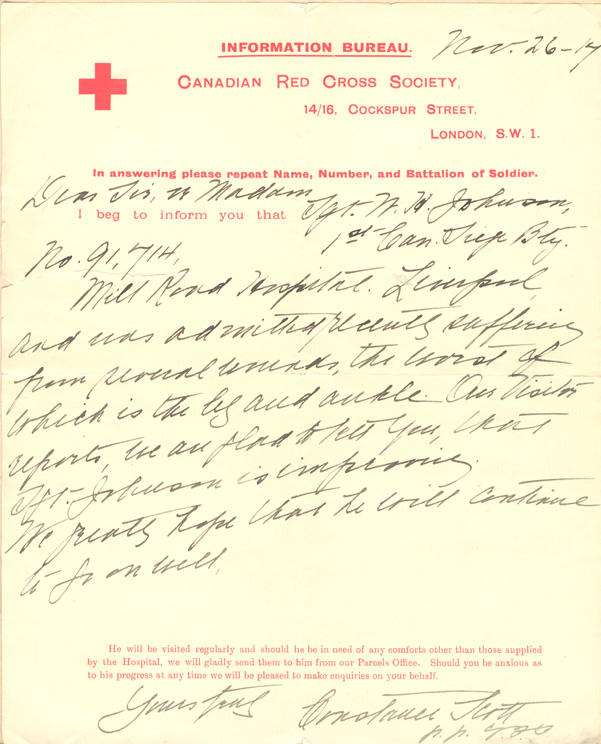 INFORMATION BUREAU.
Nov. 26-17
CANADIAN RED CROSS SOCIETY,
14/16, COCKSPUR STREET,
LONDON, S.W. 1.
In answering please repeat Name, Number, and Battalion of Soldier.
Dear Sir, or Madam,
I beg to inform you that Sgt. W. H. Johnson,
1st Can. Siege Bty.
No. 91,714,
Mill Road Hospital. Liverpool,
and was admitted recently suffering
from several wounds, the worst of
which is the leg and ankle. Our Visitor
reports, we are glad to tell you, that
Sgt. Johnson is improving.
We greatly hope that he will continue
to go on well.
He will be visited regularly and should he be in need of any comforts other than those supplied
by the Hospital, we will gladly send them to him from our Parcels Office. Should you be anxious as
to his progress at any time we will be pleased to make enquiries on your behalf.
Yours truly
Constance Scott
p.p.